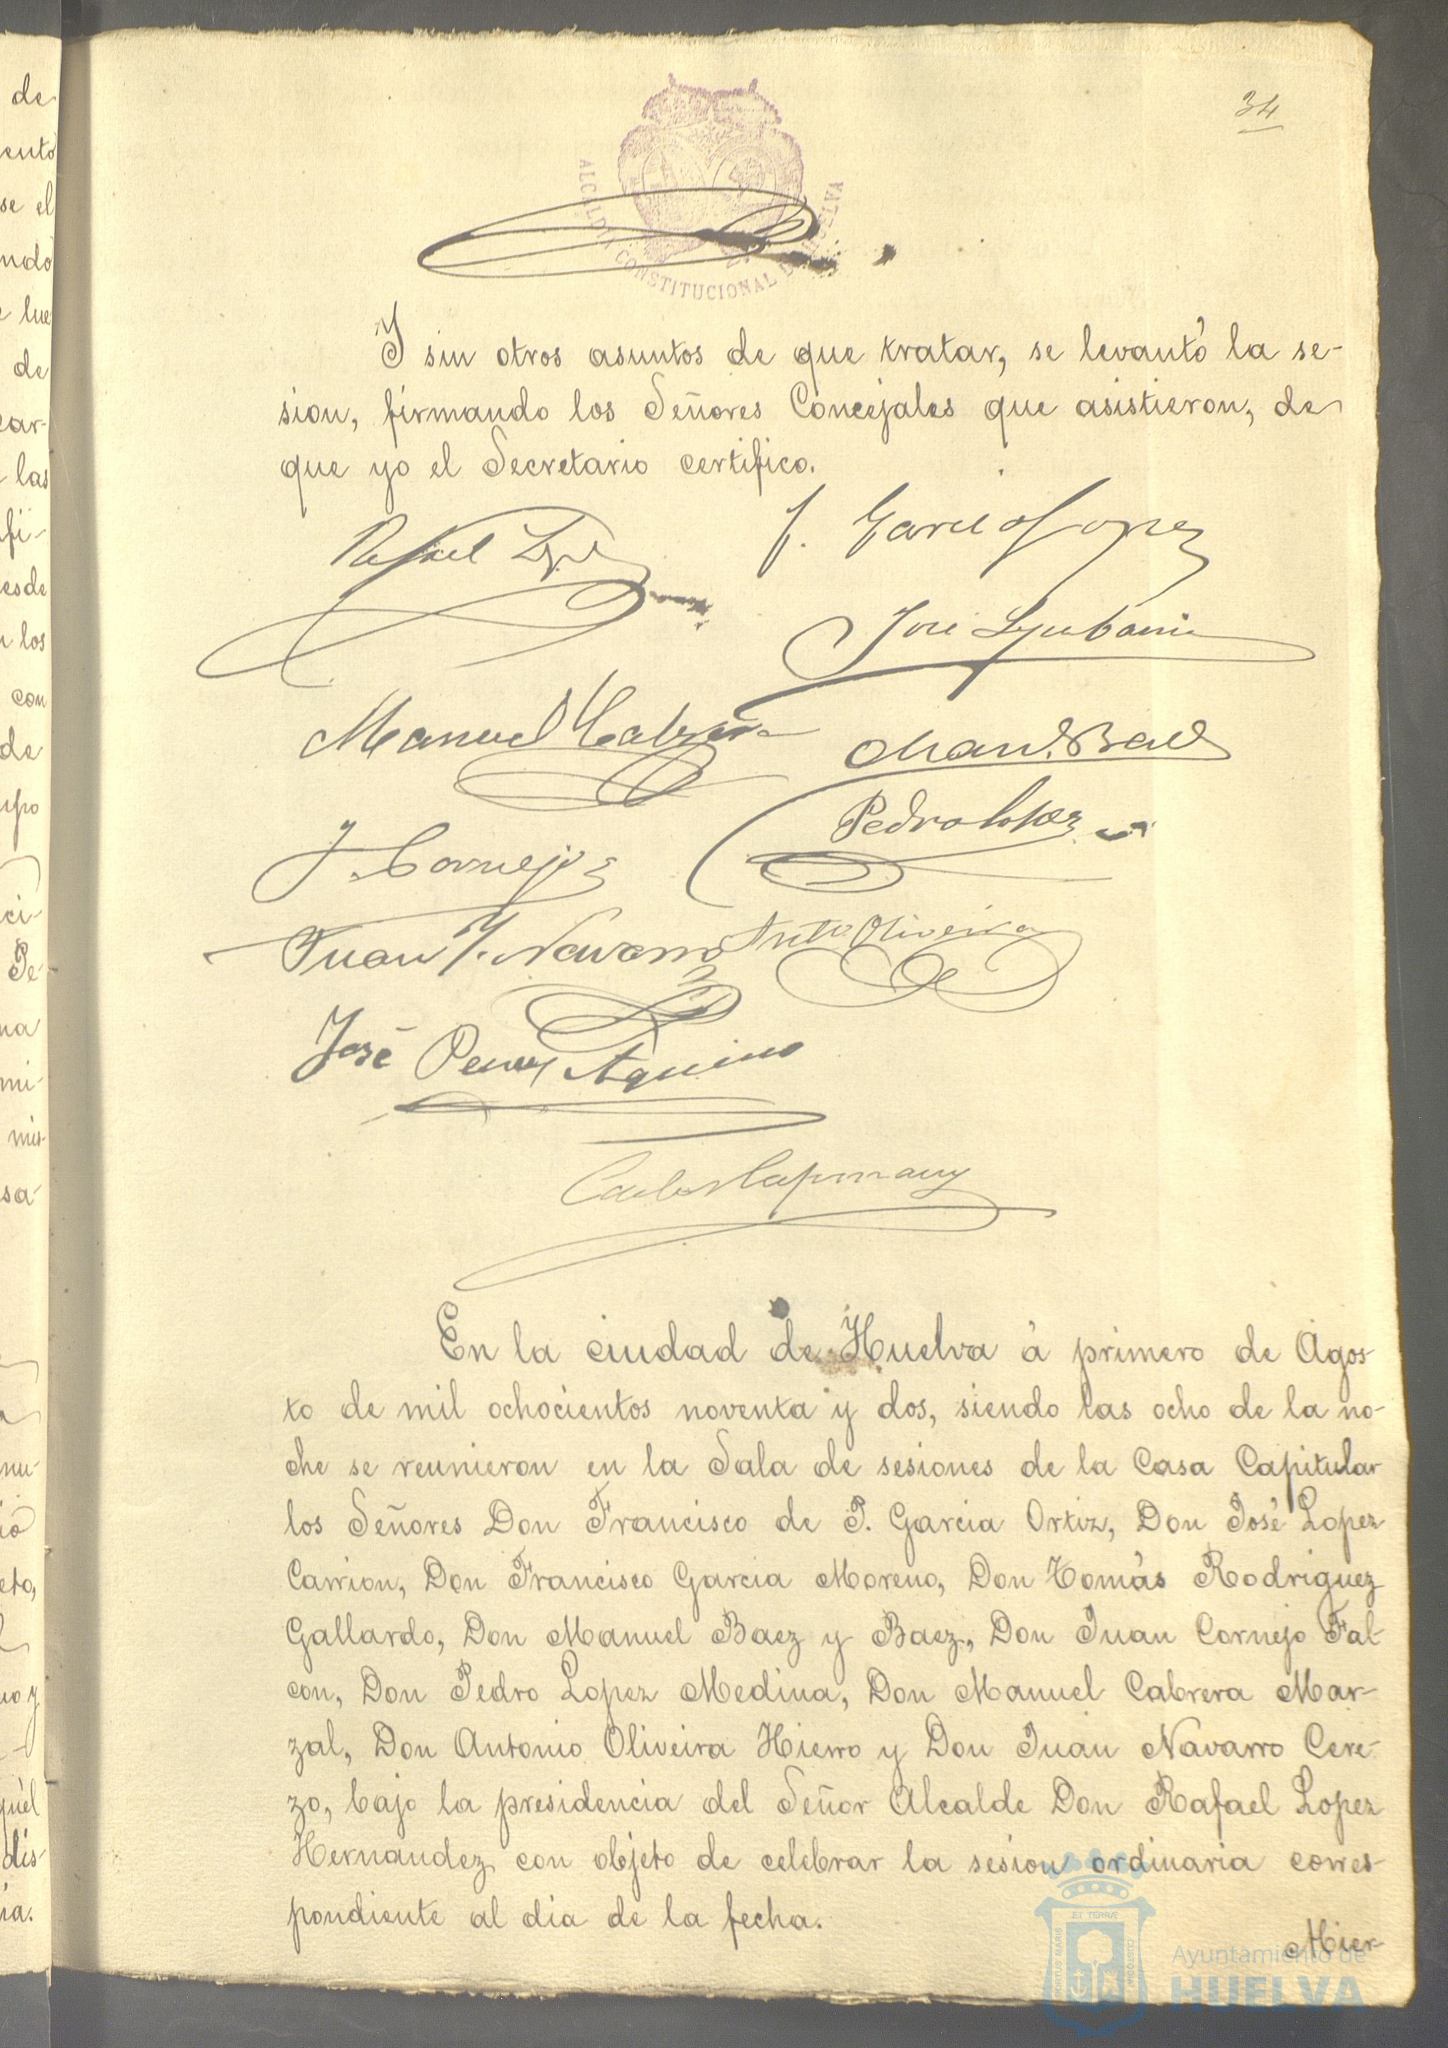 34
ALCALDIA CONSTITUCIONAL DE HUELVA
Y sin otros asuntos de que tratar, se levantó la se-
sion, firmando los Señores Concejales que asistieron, de
que yo el Secretario certifico.
Rafael Lopez
f. Garcia Lopez
José
Manuel Cabrera
Man. Baez
J. Cornejo
Pedro Lopez
Juan J. Navarro
Anto. Oliveira
José Perez Aquino
Carlos Capmany
En la ciudad de Huelva á primero de Agos-
to de mil ochocientos noventa y dos, siendo las ocho de la no-
che se reunieron en la Sala de sesiones de la Casa Capitular
los Señores Don Francisco de P. Garcia Ortiz, Don José Lopez
Carrion, Don Francisco Garcia Moreno, Don Tomás Rodriguez
Gallardo, Don Manuel Baez y Baez, Don Juan Cornejo Fal-
con, Don Pedro Lopez Medina, Don Manuel Cabrera Mar-
zal, Don Antonio Oliveira Hierro y Don Juan Navarro Cere-
zo, bajo la presidencia del Señor Alcalde Don Rafael Lopez
Hernandez con objeto de celebrar la sesion ordinaria corres-
pondiente al dia de la fecha.
Mier-
Ayuntamiento de
HUELVA